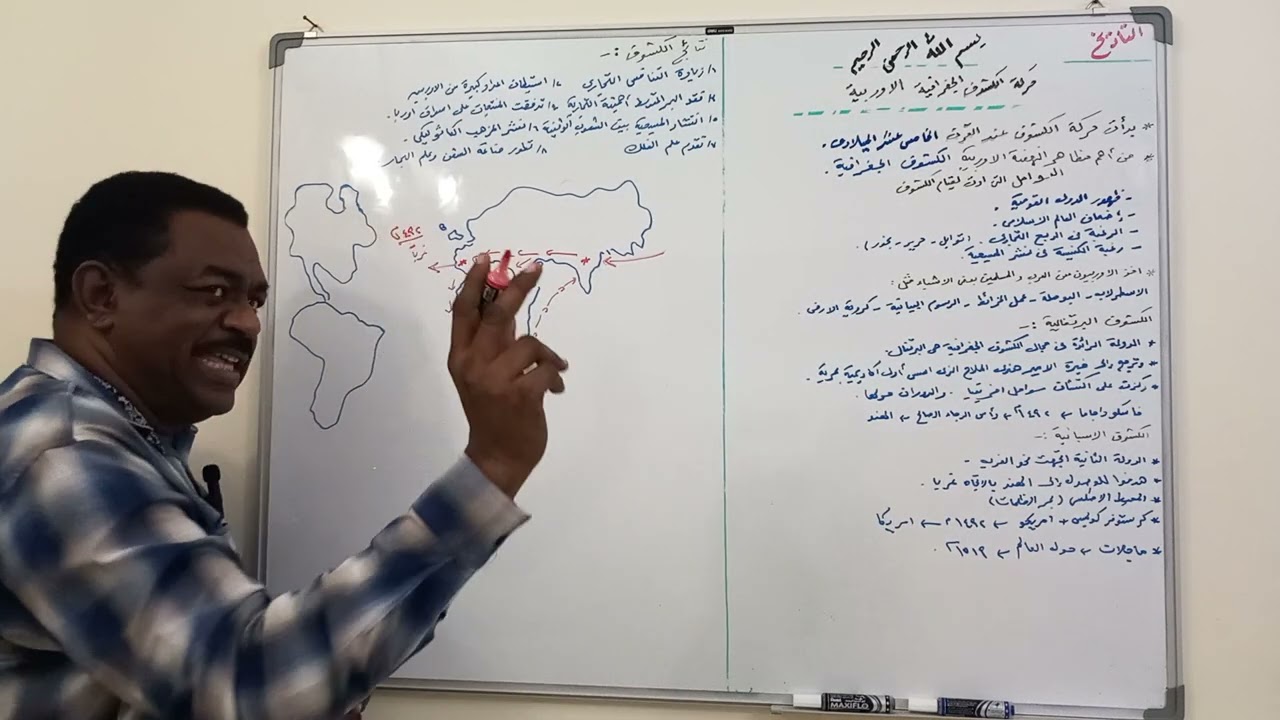 التاريخ
بسم الله الرحمن الرحيم
حركة الكشوف الجغرافية الاوربية
* بدأت حركة الكشوف عند القرن الخامس عشر الميلادى.
* من أهم مظاهر النهضة الاوربية الكشوف الجغرافية.
العوامل التى ادت لقيام الكشوف
- ظهور الدول القومية.
- إضعاف العالم الاسلامى.
- الرغبة فى الربح التجارى. (توابل - حرير - بخور).
- رغبة الكنيسة فى نشر المسيحية
* اخذ الاوربيون من العرب والمسلمين بعض الاشياء مثل:
الاسطرلاب - البوصلة - عمل الخرائط - الرسوم البيانية - كروية الارض
الكشوف البرتغالية :-
* الدولة الرائدة فى مجال الكشوف الجغرافية هى البرتغال.
* وترجع إلى خبرة الامير هنرى الملاح الذى اسس أول اكاديمية بحرية.
* ركزت على اكتشاف سواحل افريقيا. والدوران حولها.
فاسكو داجاما ← ١٤٩٢م ← رأس الرجاء الصالح ← الهند
الكشوف الاسبانية :-
* الدولة الثانية اتجهت نحو الغرب -
* هدفوا للوصول إلى الهند بالاتجاه غربا.
* المحيط الاطلس (بحر الظلمات)
* كرستوفر كولمبس + امريكو ← ١٤٩٢م ← امريكا
* ماجلان ← حول العالم ← ١٥١٩م.
نتائج الكشوف :-
١/ زيادة التنافس التجارى ٢/ استيطان اعداد كبيرة من الاوربيين
٣/ فقد البحر المتوسط أهميته التجارية ٤/ تدفقت المنتجات على اسواق أوربا.
٥/ انتشار المسيحية بين الشعوب الوثنية ٦/ انتشر المذهب الكاثوليكى.
٧/ تقدم علم الفلك ٨/ تطور صناعة السفن وعلم البحار
١٤٩٢م
غربا
MAXIFLO